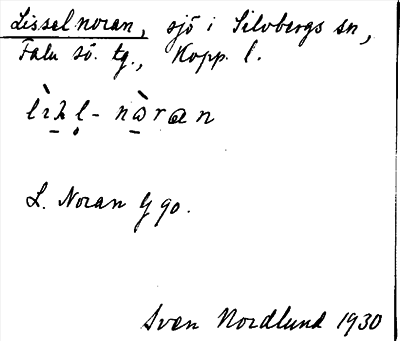 Lisselnoran, sjö i Silvbergs sn,
Falu sö. tg., Kopp. l.
L. Noran G 90.
Sven Nordlund 1930